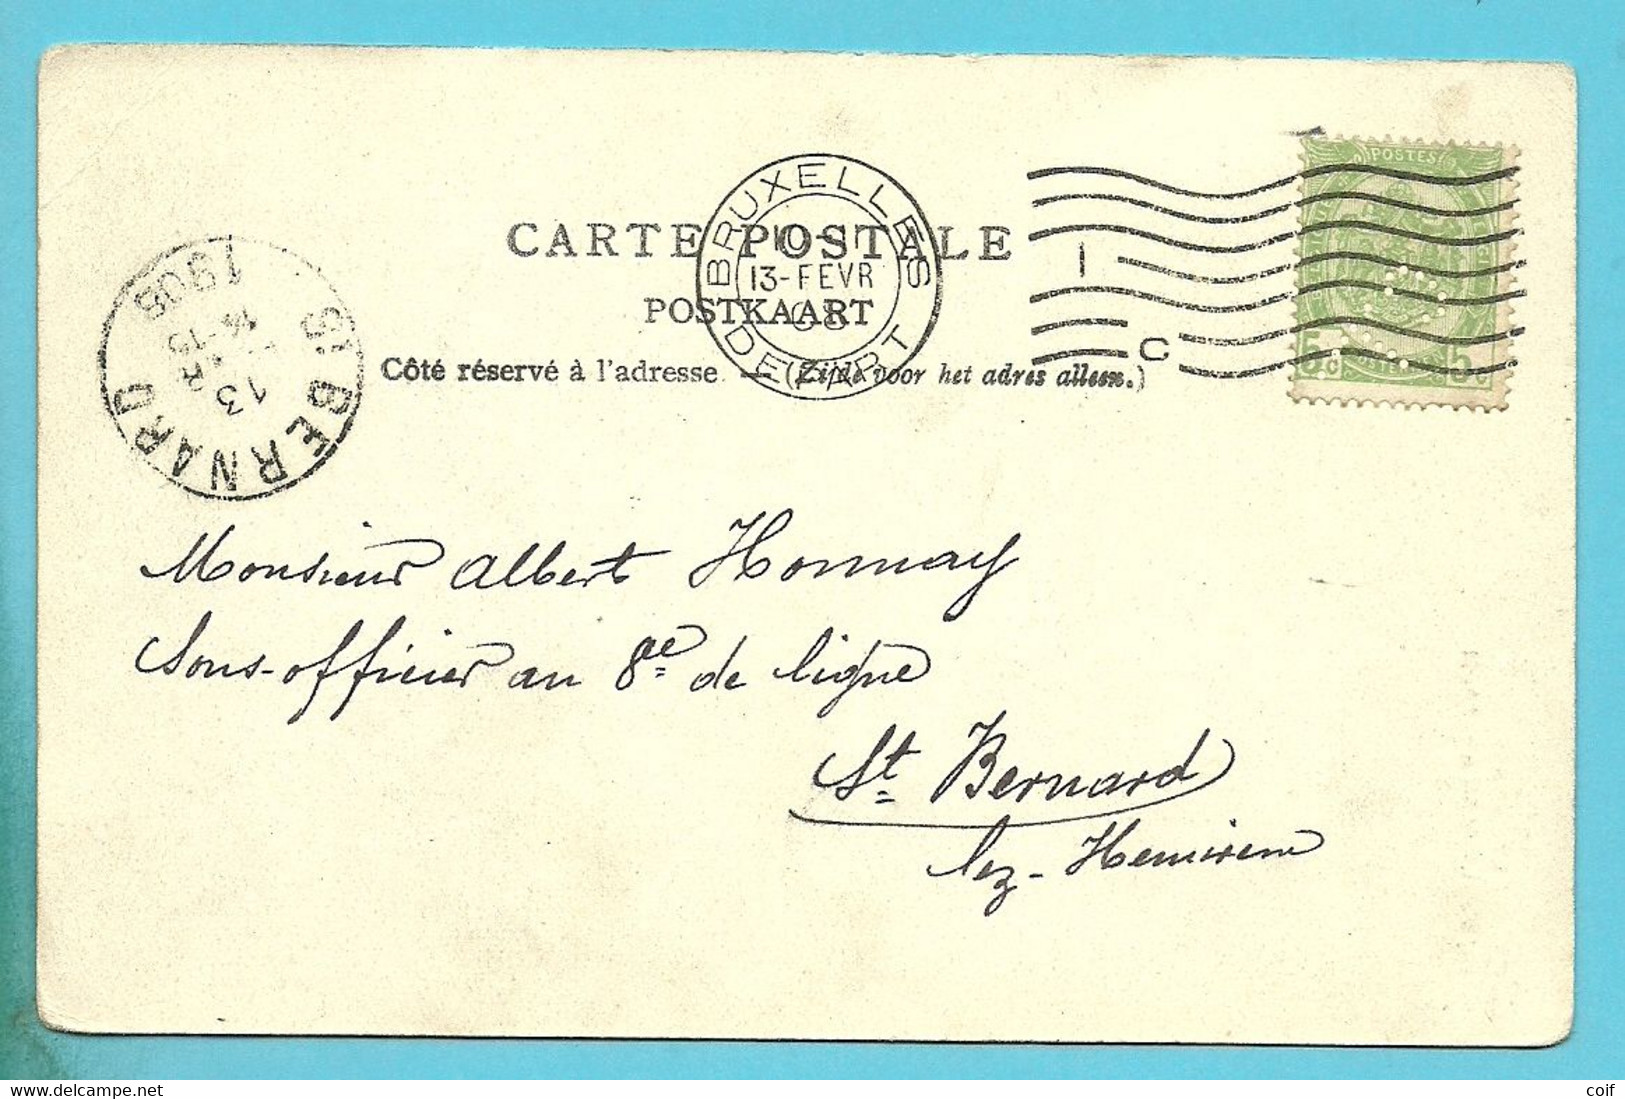 CARTE POSTALE
POSTKAART
Côté réservé à l'adresse. — (Zijde voor het adres alleen.)
BRUXELLES
13-FEVR
DEPART
1
C
POSTES
5c 5c
ST BERNARD
13
14-15
1905
Monsieur Albert Honnay
Sous-officier au 8e de ligne
St Bernard
lez-Hemixem
coif